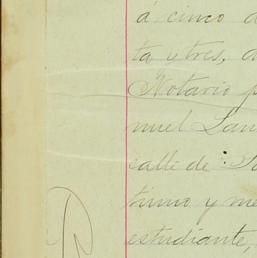 á cinco d
ta y tres, a
Notario p
muel Lan
calle de
tinuo y me
estudiante,